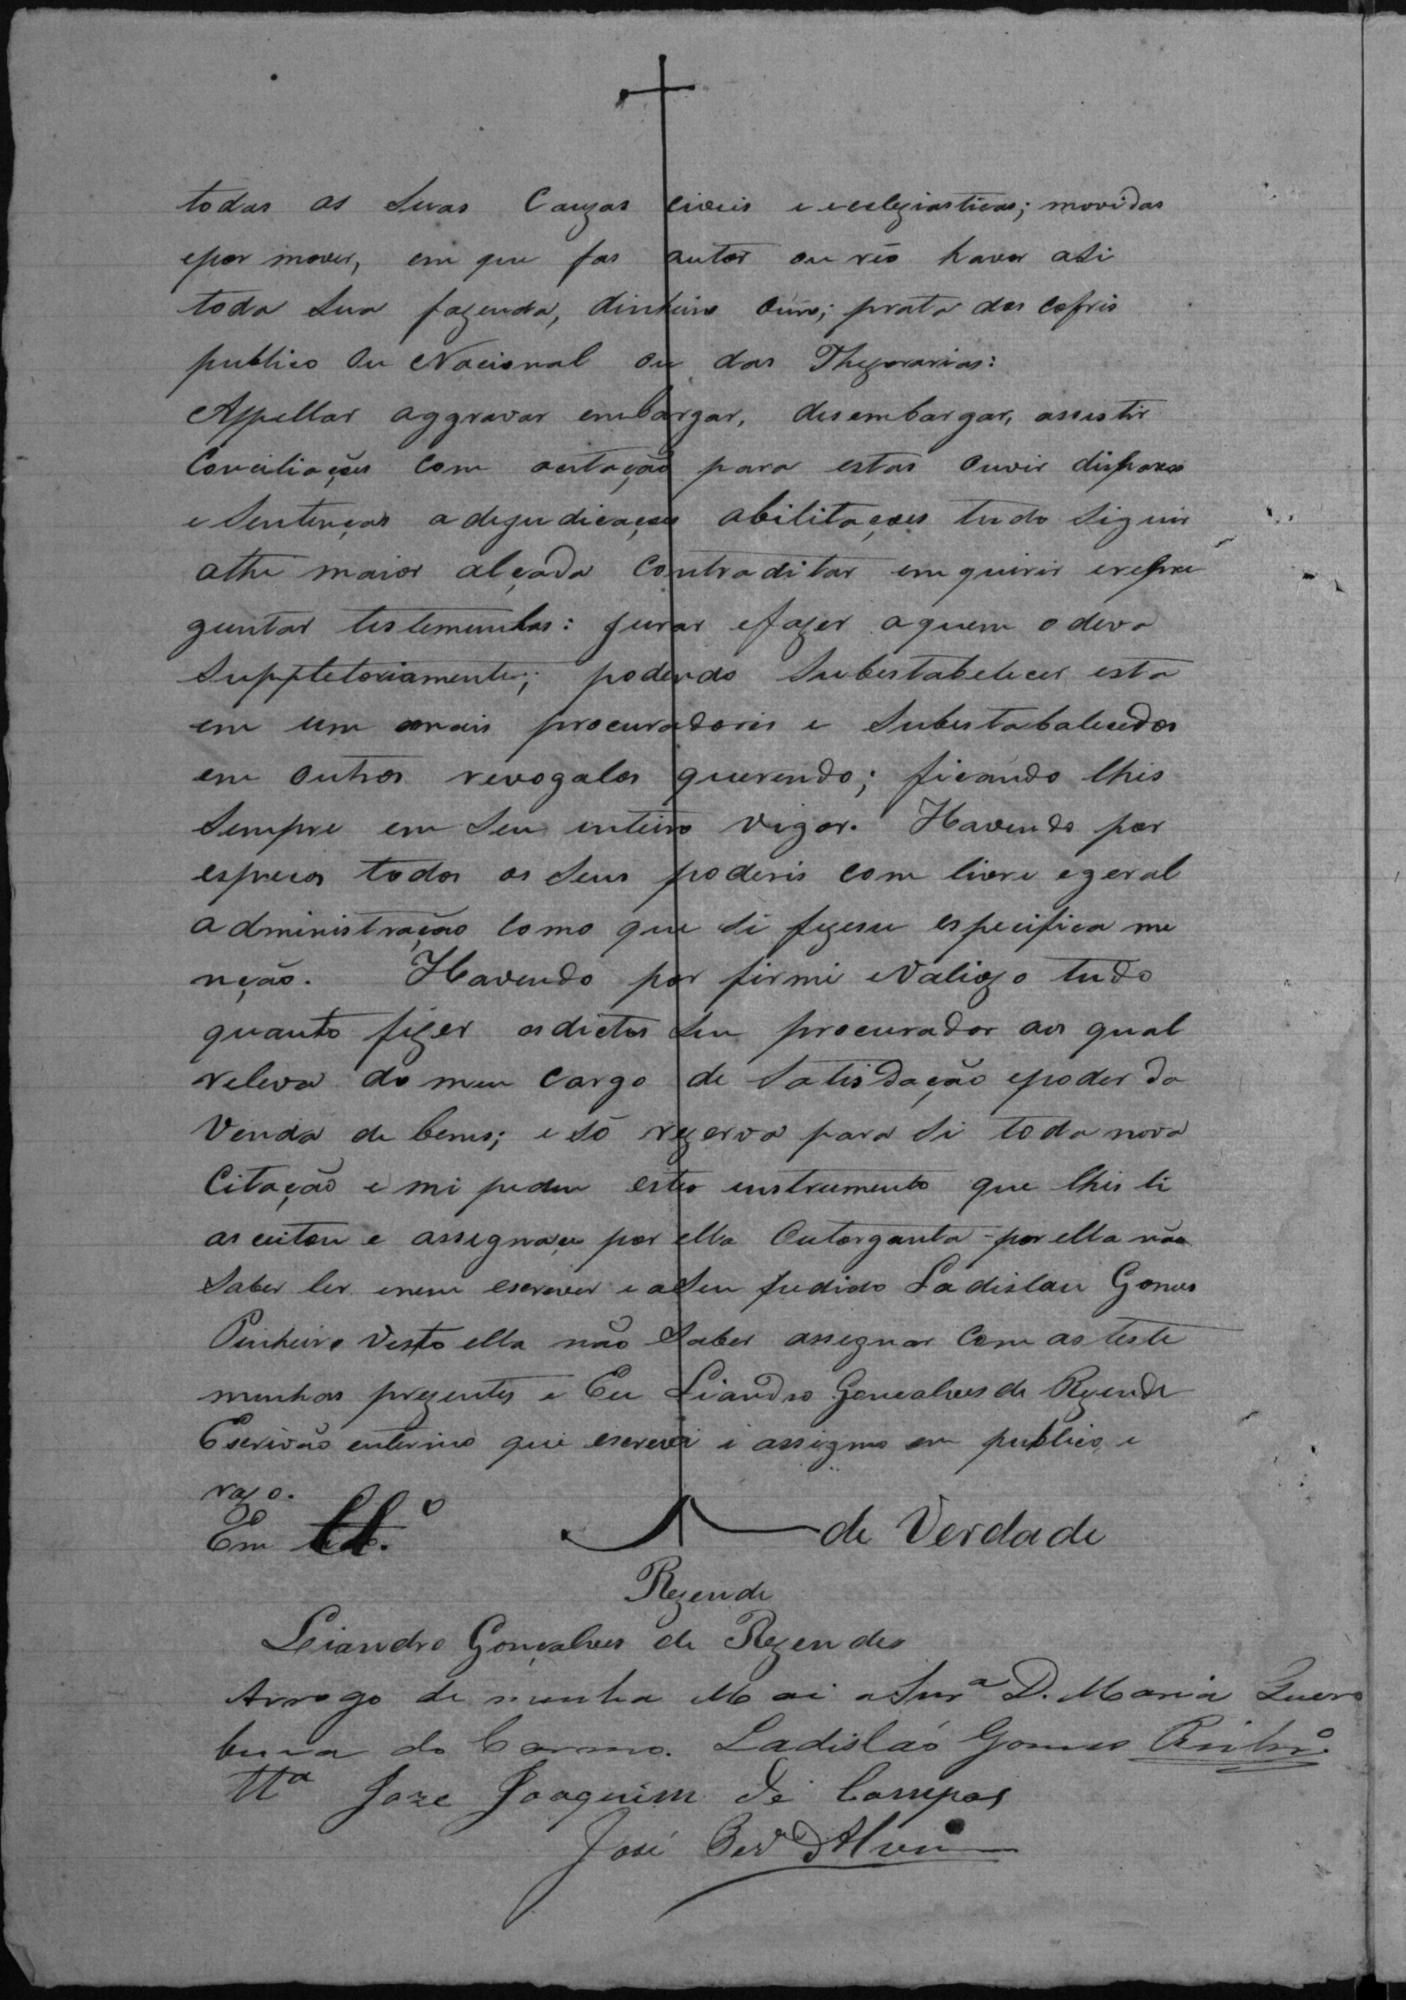 todas as Suas Cauzas civeis e eclegiasticas; movidas
epor mover, em que for autor ou réo haver asi
toda Sua fazenda, dinheiro Ouro; prata dos cofris
publico Ou Nacional ou das Thezorarias:
Appellar aggravar embargar, desembargar, assistir
Conciliações com acitação para estas ouvir dispaxos
e Sentenças adejudicações abilitações tudo Siguir
athe maior alçada Contraditar emquirir erepre
guntar testemunhas: jurar efazer aquem odeva
Suppletoriamente; podendo Subestabelecer esta
em um omais procuradoris e Subestabalecedos
em outros revogalos querendo; ficando lhis
Sempre em Seu inteiro vigor. Havendo por
espreços todos os Seus poderis com livre egeral
administração como que Si fizesse especifica me
nção. Havendo por firmi eValiozo tudo
quanto fizer osdictos Seu procurador aos qual
releva do meu cargo de Satisdação epoder da
Venda de bens; e Só rezerva para Si toda nova
Citação e mi pediu este instrumento que lhis li
asceitou e assignou por ella Outorganta por ella não
Saber ler enem escrever e aSeu pedido Ladislau Gomes
Pinheiro Visto ella não Saber assignar Com as teste
munhas prezentes e Eu Liandro Goncalves de Rezende
Escrivão enterino que escrevi i assigno em publico e
razo.
Em tt.º de Verdade
Rezende
Liandro Gonçalves de Rezende
Arrogo de minha Mai a Snrª D. Maria Quero
bina do Carmo. Ladisláo Gomes Pinhrº
ttª Joze Joaquim de Campos
José